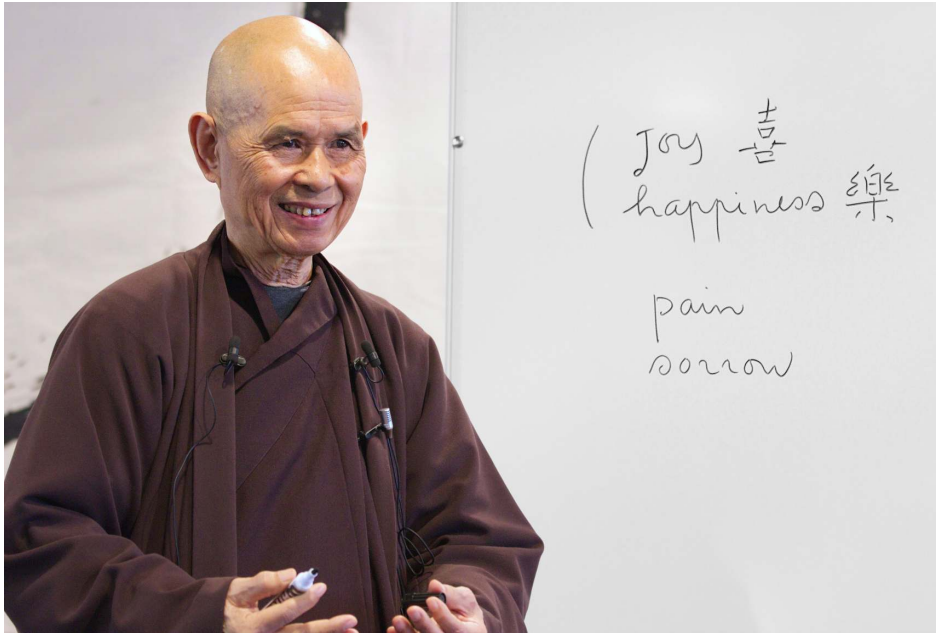 Joy 喜
happiness 樂
pain
sorrow